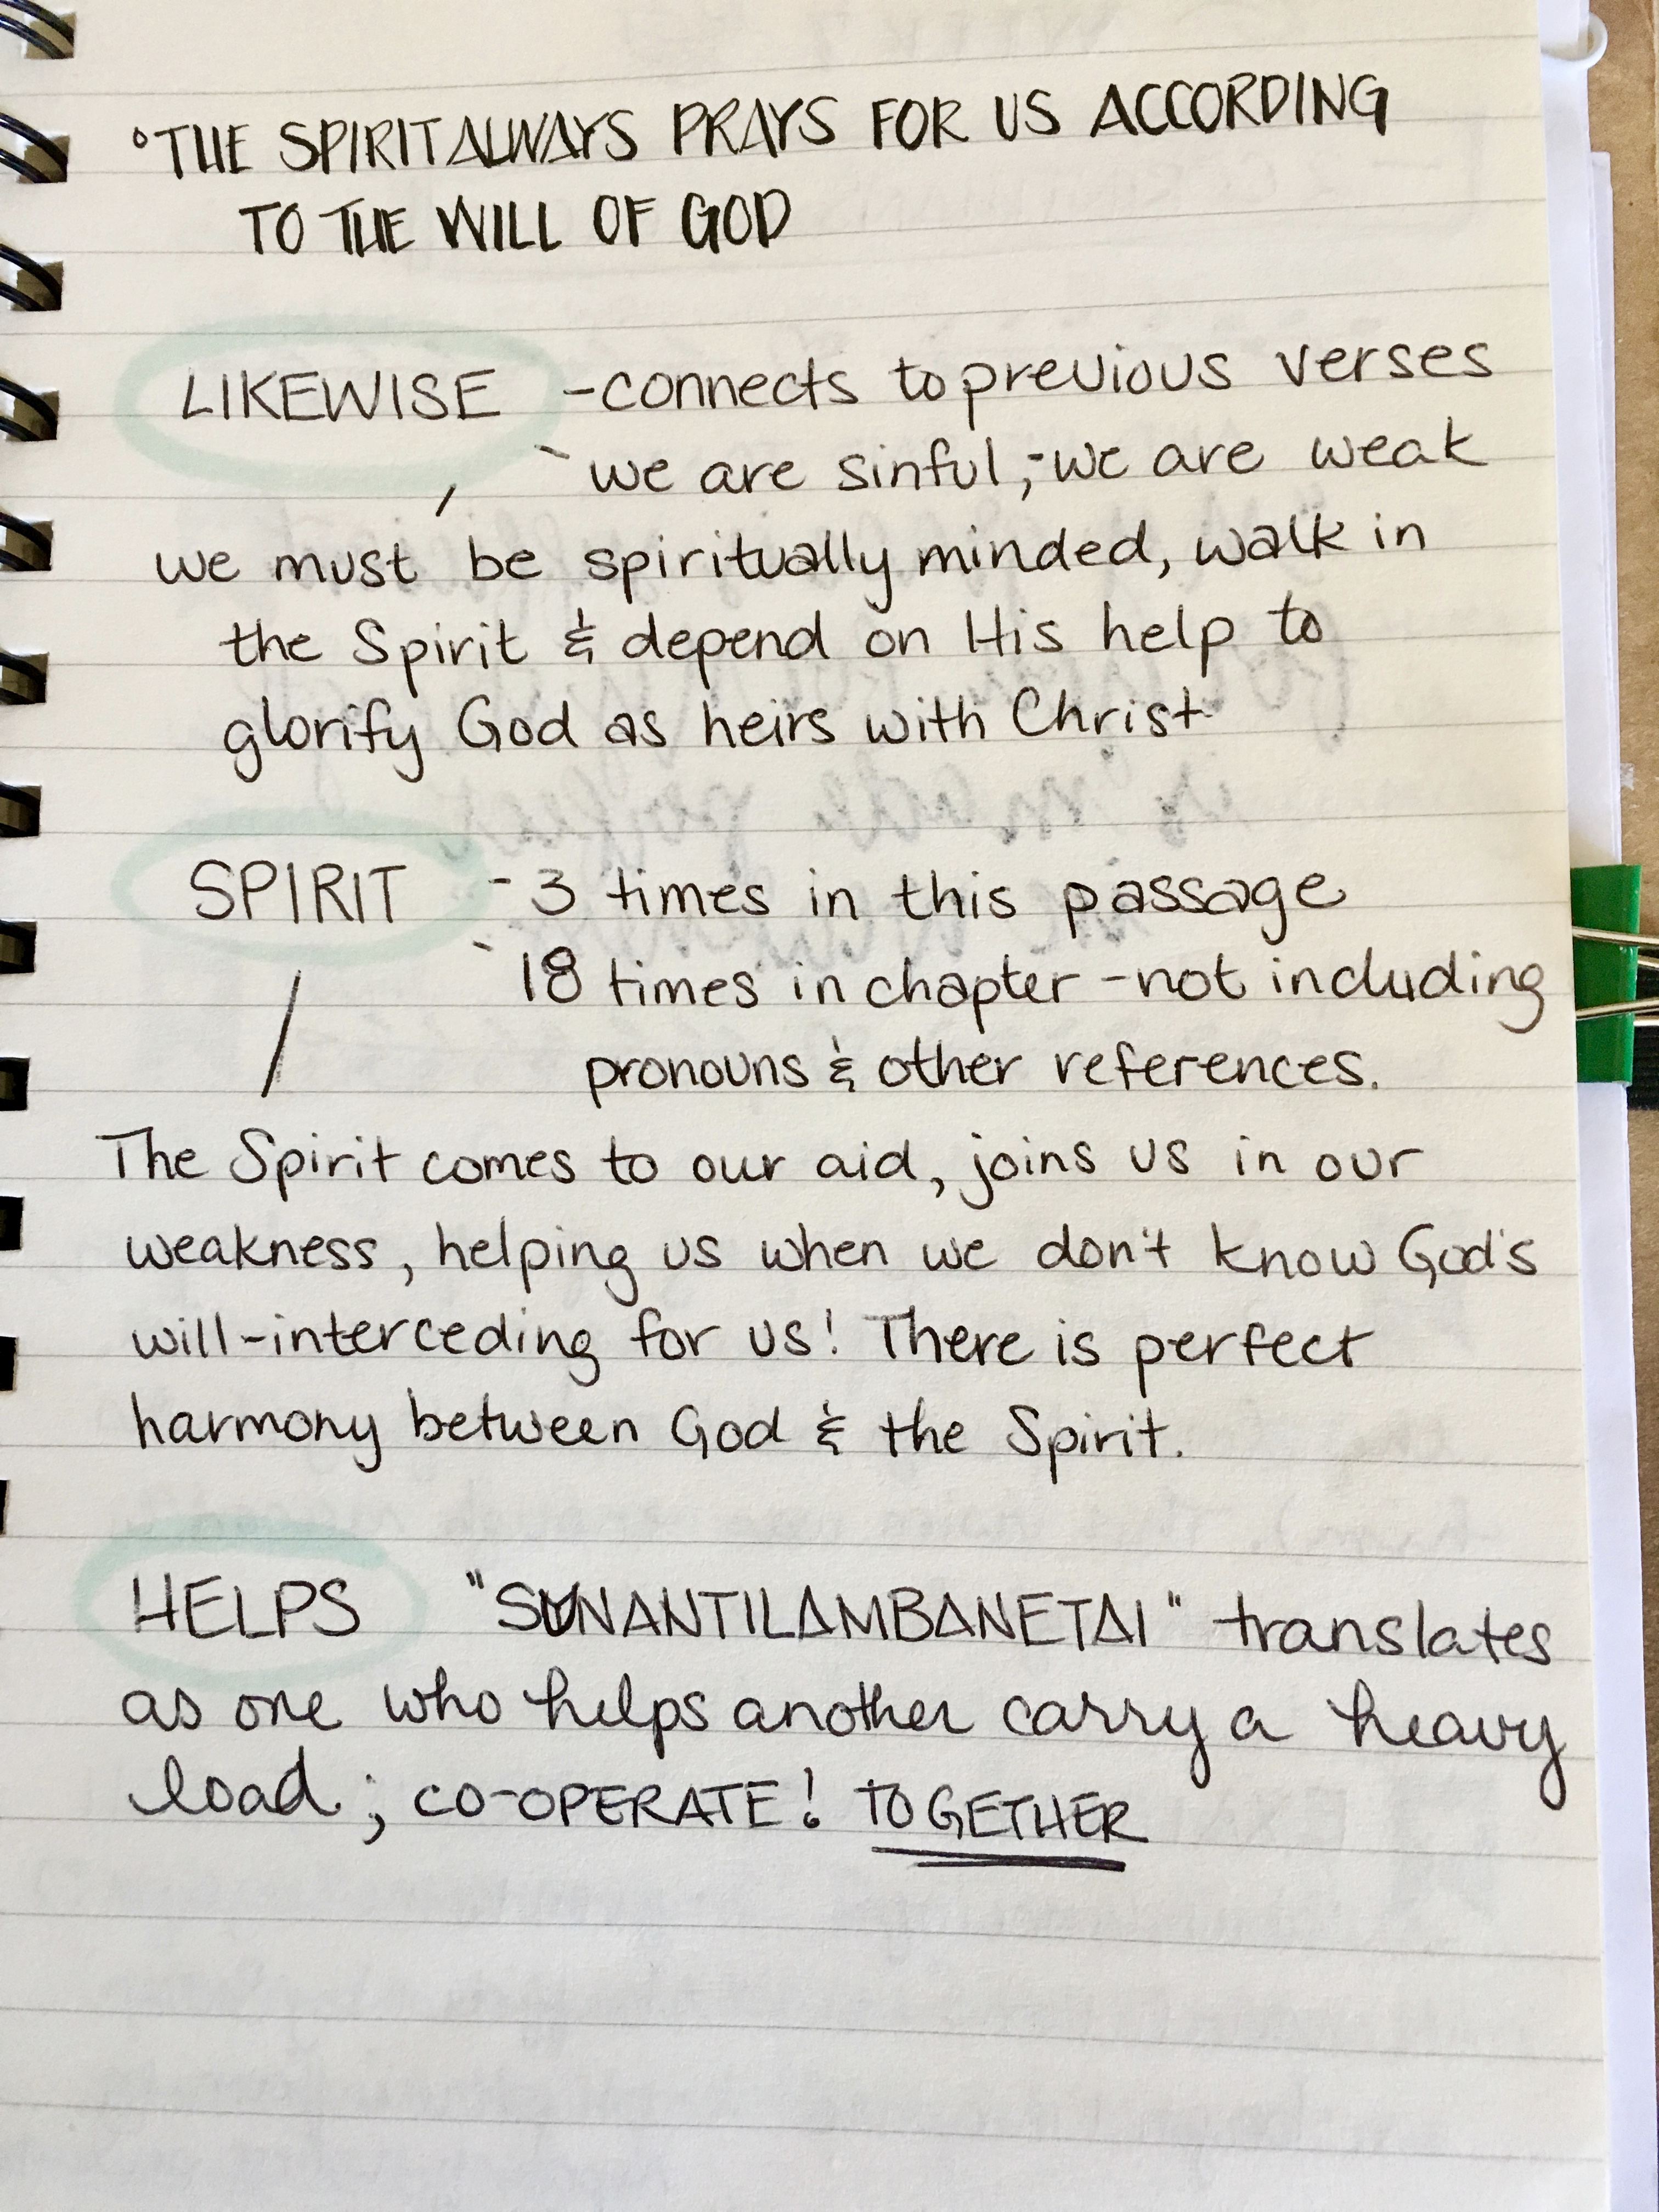 °THE SPIRIT ALWAYS PRAYS FOR US ACCORDING
TO THE WILL OF GOD
LIKEWISE - connects to previous verses
- we are sinful; - we are weak
we must be spiritually minded, walk in
the Spirit & depend on His help to
glorify God as heirs with Christ
SPIRIT - 3 times in this passage
- 18 times in chapter - not including
pronouns & other references.
The Spirit comes to our aid, joins us in our
weakness, helping us when we don't know God's
will - interceding for us! There is perfect
harmony between God & the Spirit.
HELPS "SUNANTILAMBANETAI" translates
as one who helps another carry a heavy
load; CO-OPERATE! TOGETHER